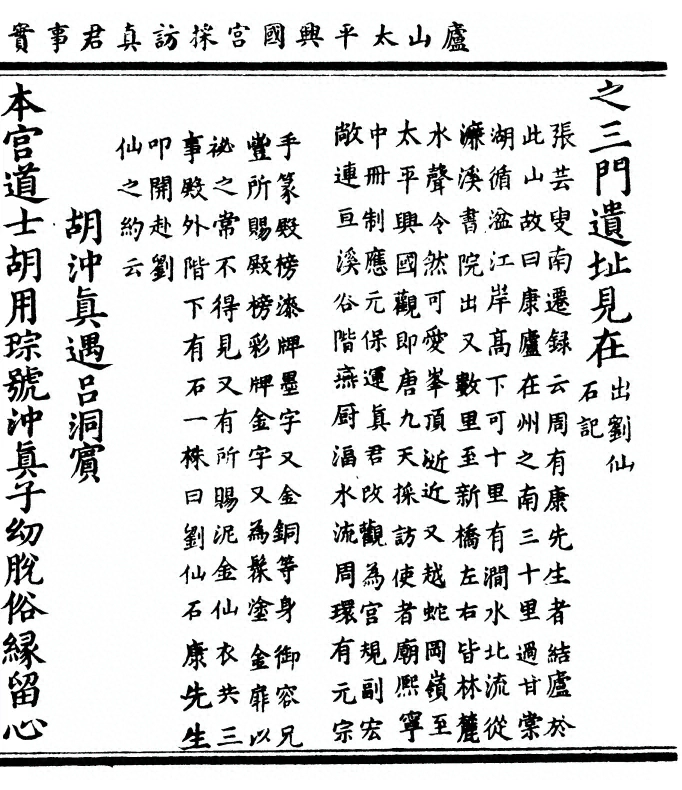 廬山太平興國宮採訪真君事實
之三門遺址見在
出劉仙
石記
張芸叟南遷録云周有康先生者結廬於
此山故曰康廬在州之南三十里過甘棠
湖循湓江岸髙下可十里有澗水北流從
濂溪書院出又數里至新橋左右皆林麓
水聲令然可愛峯頂漸近又越蛇岡嶺至
太平興國觀即唐九天採訪使者廟熙寧
中冊制應元保運眞君改觀為宮規副宏
敞連亘溪谷階燕厨湢水流周環有元宗
手篆殿榜漆牌墨字又金銅等身御容兄
豐所賜殿榜彩牌金字又為髹塗金扉以
祕之常不得見又有所賜泥金仙衣共三
事殿外階下有石一株曰劉仙石康先生
叩開赴劉
仙之約云
胡沖眞遇吕洞賓
本宮道士胡用琮號沖眞子幼脫俗緣留心